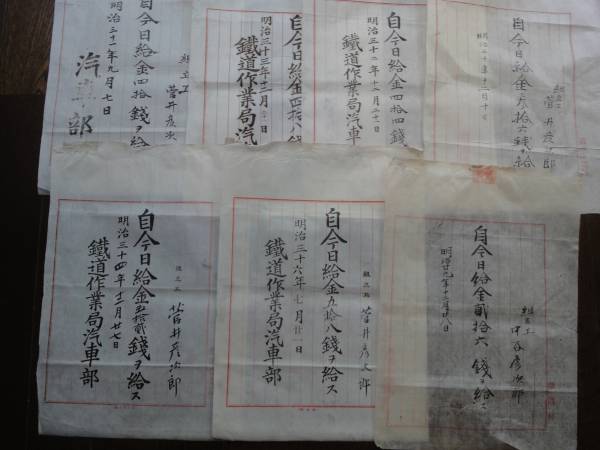 組立工
菅井彦次
自今日給金四拾 錢ヲ給
明治三十一年九月七日
汽車部
自今日給金四拾八錢
明治三十三年十二月
鐵道作業局汽
自今日給金四拾四錢
明治三十二年十二月
鐵道作業局汽車
組立工
菅井彦次郎
自今日給金参拾六錢ヲ給
組立工
菅井彦次郎
自今日給金五拾貳錢ヲ給ス
明治三十四年十二月廿七日
鐵道作業局汽車部
組立工
菅井彦次郎
自今日給金五拾八錢ヲ給ス
明治三十六年七月廿一日
鐵道作業局汽車部
組立工
彦次郎
自今日給金貳拾六 錢ヲ給ス
明治廿九年十二月廿八日